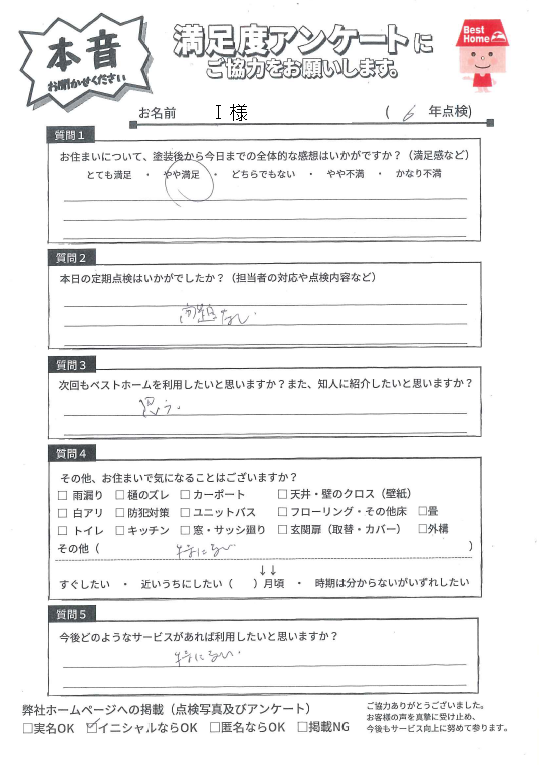 本音
お聞かせください
満足度アンケートに
ご協力をお願いします。
Best
Home
お名前 I 様 ( 6 年点検)
質問1
お住まいについて、塗装後から今日までの全体的な感想はいかがですか？（満足感など）
とても満足 ・ やや満足 ・ どちらでもない ・ やや不満 ・ かなり不満
質問2
本日の定期点検はいかがでしたか？（担当者の対応や点検内容など）
問題なし.
質問3
次回もベストホームを利用したいと思いますか？また、知人に紹介したいと思いますか？
思う.
質問4
その他、お住まいで気になることはございますか？
□ 雨漏り □ 樋のズレ □ カーポート □ 天井・壁のクロス（壁紙）
□ 白アリ □ 防犯対策 □ ユニットバス □ フローリング・その他床 □畳
□ トイレ □ キッチン □ 窓・サッシ廻り □ 玄関扉（取替・カバー） □外構
その他（ 特にない ）
↓↓
すぐしたい ・ 近いうちにしたい（ ）月頃 ・ 時期は分からないがいずれしたい
質問5
今後どのようなサービスがあれば利用したいと思いますか？
特にない.
弊社ホームページへの掲載（点検写真及びアンケート）
□実名OK ☑イニシャルならOK □匿名ならOK □掲載NG
ご協力ありがとうございました。
お客様の声を真摯に受け止め、
今後もサービス向上に努めて参ります。